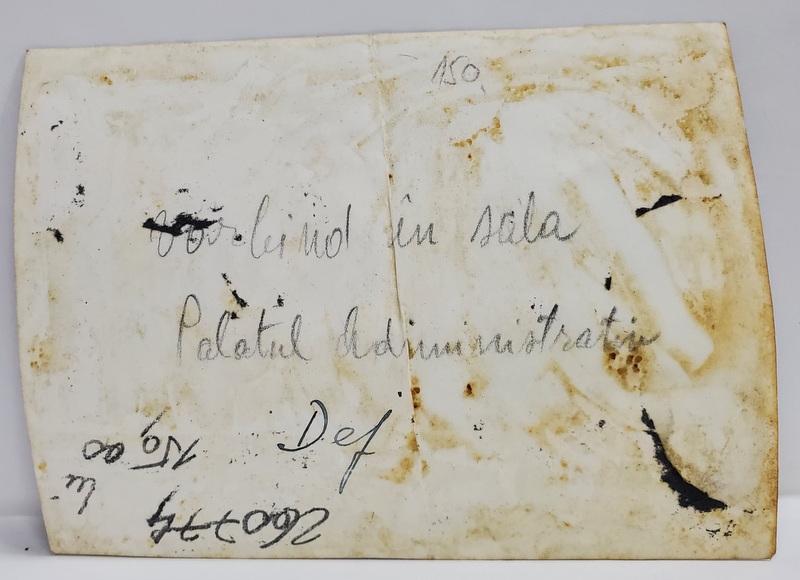 150,
Vorbind în sala
Palatul Administrativ
Def
150,00
lei